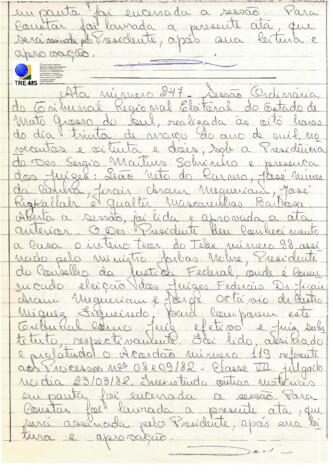 em pauta foi encerrada a sessão. Para
Constar foi lavrada a presente ata, que
será assinada pelo Presidente, após sua leitura e
aprovação.
TRE-MS
Ata número 847. Sessão Ordinária
do Tribunal Regional Eleitoral do Estado de
Mato Grosso do Sul, realizada às oito horas
do dia trinta de março do ano de mil, no
vecentos e oitenta e dois, sob a Presidência
do Des Sergio Martins Sobrinho e presença
dos Juizes: Leão Neto do Carmo, José Nunes
da Cunha, Jirair Aram Meguerian, José
Rizkallah e Qualter Mascarenhas Barbosa
Aberta a sessão, foi lida e aprovada a ata
anterior. O Des. Presidente deu conhecimento
a Casa. o inteiro teor do Telex número 98, assi
nado pelo ministro Jarbas Nobre, Presidente
do Conselho da Justiça Federal, onde é comu
nicado eleição dos Juizes Federais Dr. Jirair
Aram Meguerian e Jorge Octávio de Castro
Miguez Figueiredo, para comporem este
Tribunal como juiz efetivo e juiz subs
tituto, respectivamente. Foi lido, assinado
e publicado o Acordão número 119 referente
aos Processos nos 08 e 09/82 - Classe VII julgado
no dia 23/03/82. Inexistindo outras matérias
em pauta, foi encerrada a sessão. Para
Constar foi lavrada a presente ata, que
será assinada pelo Presidente, após sua lei
tura e aprovação.